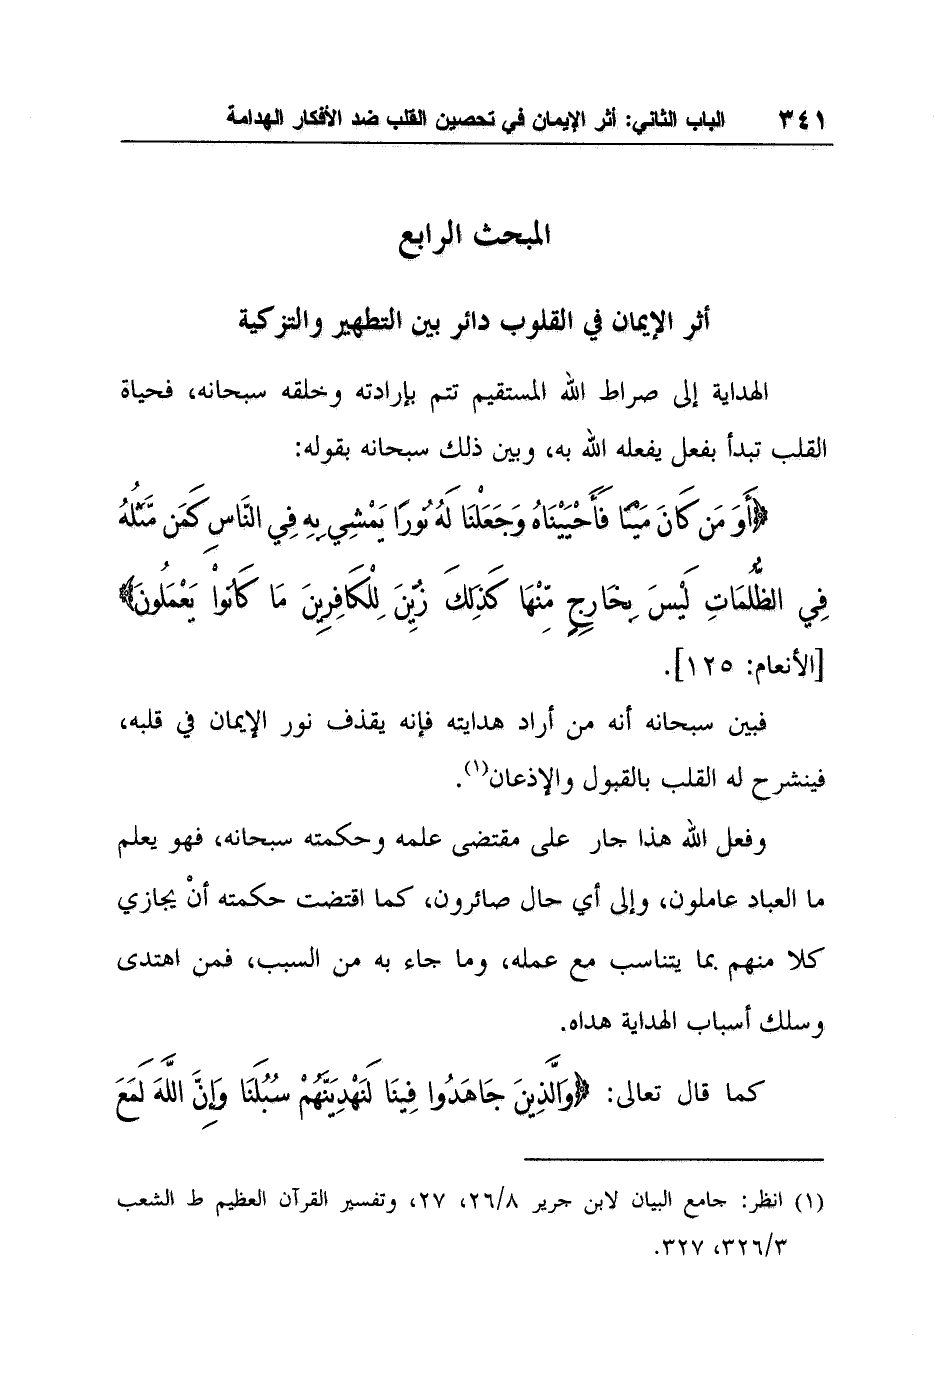 ٣٤١ الباب الثاني: أثر الإيمان في تحصين القلب ضد الأفكار الهدامة
المبحث الرابع
أثر الإيمان في القلوب دائر بين التطهير والتزكية
الهداية إلى صراط الله المستقيم تتم بإرادته وخلقه سبحانه، فحياة
القلب تبدأ بفعل يفعله الله به، وبين ذلك سبحانه بقوله:
﴿أَوَ مَن كَانَ مَيْتًا فَأَحْيَيْنَاهُ وَجَعَلْنَا لَهُ نُورًا يَمْشِي بِهِ فِي النَّاسِ كَمَن مَّثَلُهُ
فِي الظُّلُمَاتِ لَيْسَ بِخَارِجٍ مِّنْهَا كَذَلِكَ زُيِّنَ لِلْكَافِرِينَ مَا كَانُواْ يَعْمَلُونَ﴾
[الأنعام: ١٢٥].
فبين سبحانه أنه من أراد هدايته فإنه يقذف نور الإيمان في قلبه،
فينشرح له القلب بالقبول والإذعان(١).
وفعل الله هذا جار على مقتضى علمه وحكمته سبحانه، فهو يعلم
ما العباد عاملون، وإلى أي حال صائرون، كما اقتضت حكمته أنْ يجازي
كلا منهم بما يتناسب مع عمله، وما جاء به من السبب، فمن اهتدى
وسلك أسباب الهداية هداه.
كما قال تعالى: ﴿وَالَّذِينَ جَاهَدُوا فِينَا لَنَهْدِيَنَّهُمْ سُبُلَنَا وَإِنَّ اللَّهَ لَمَعَ
(١) انظر: جامع البيان لابن جرير ٢٦/٨، ٢٧، وتفسير القرآن العظيم ط الشعب
٣٢٦/٣، ٣٢٧.